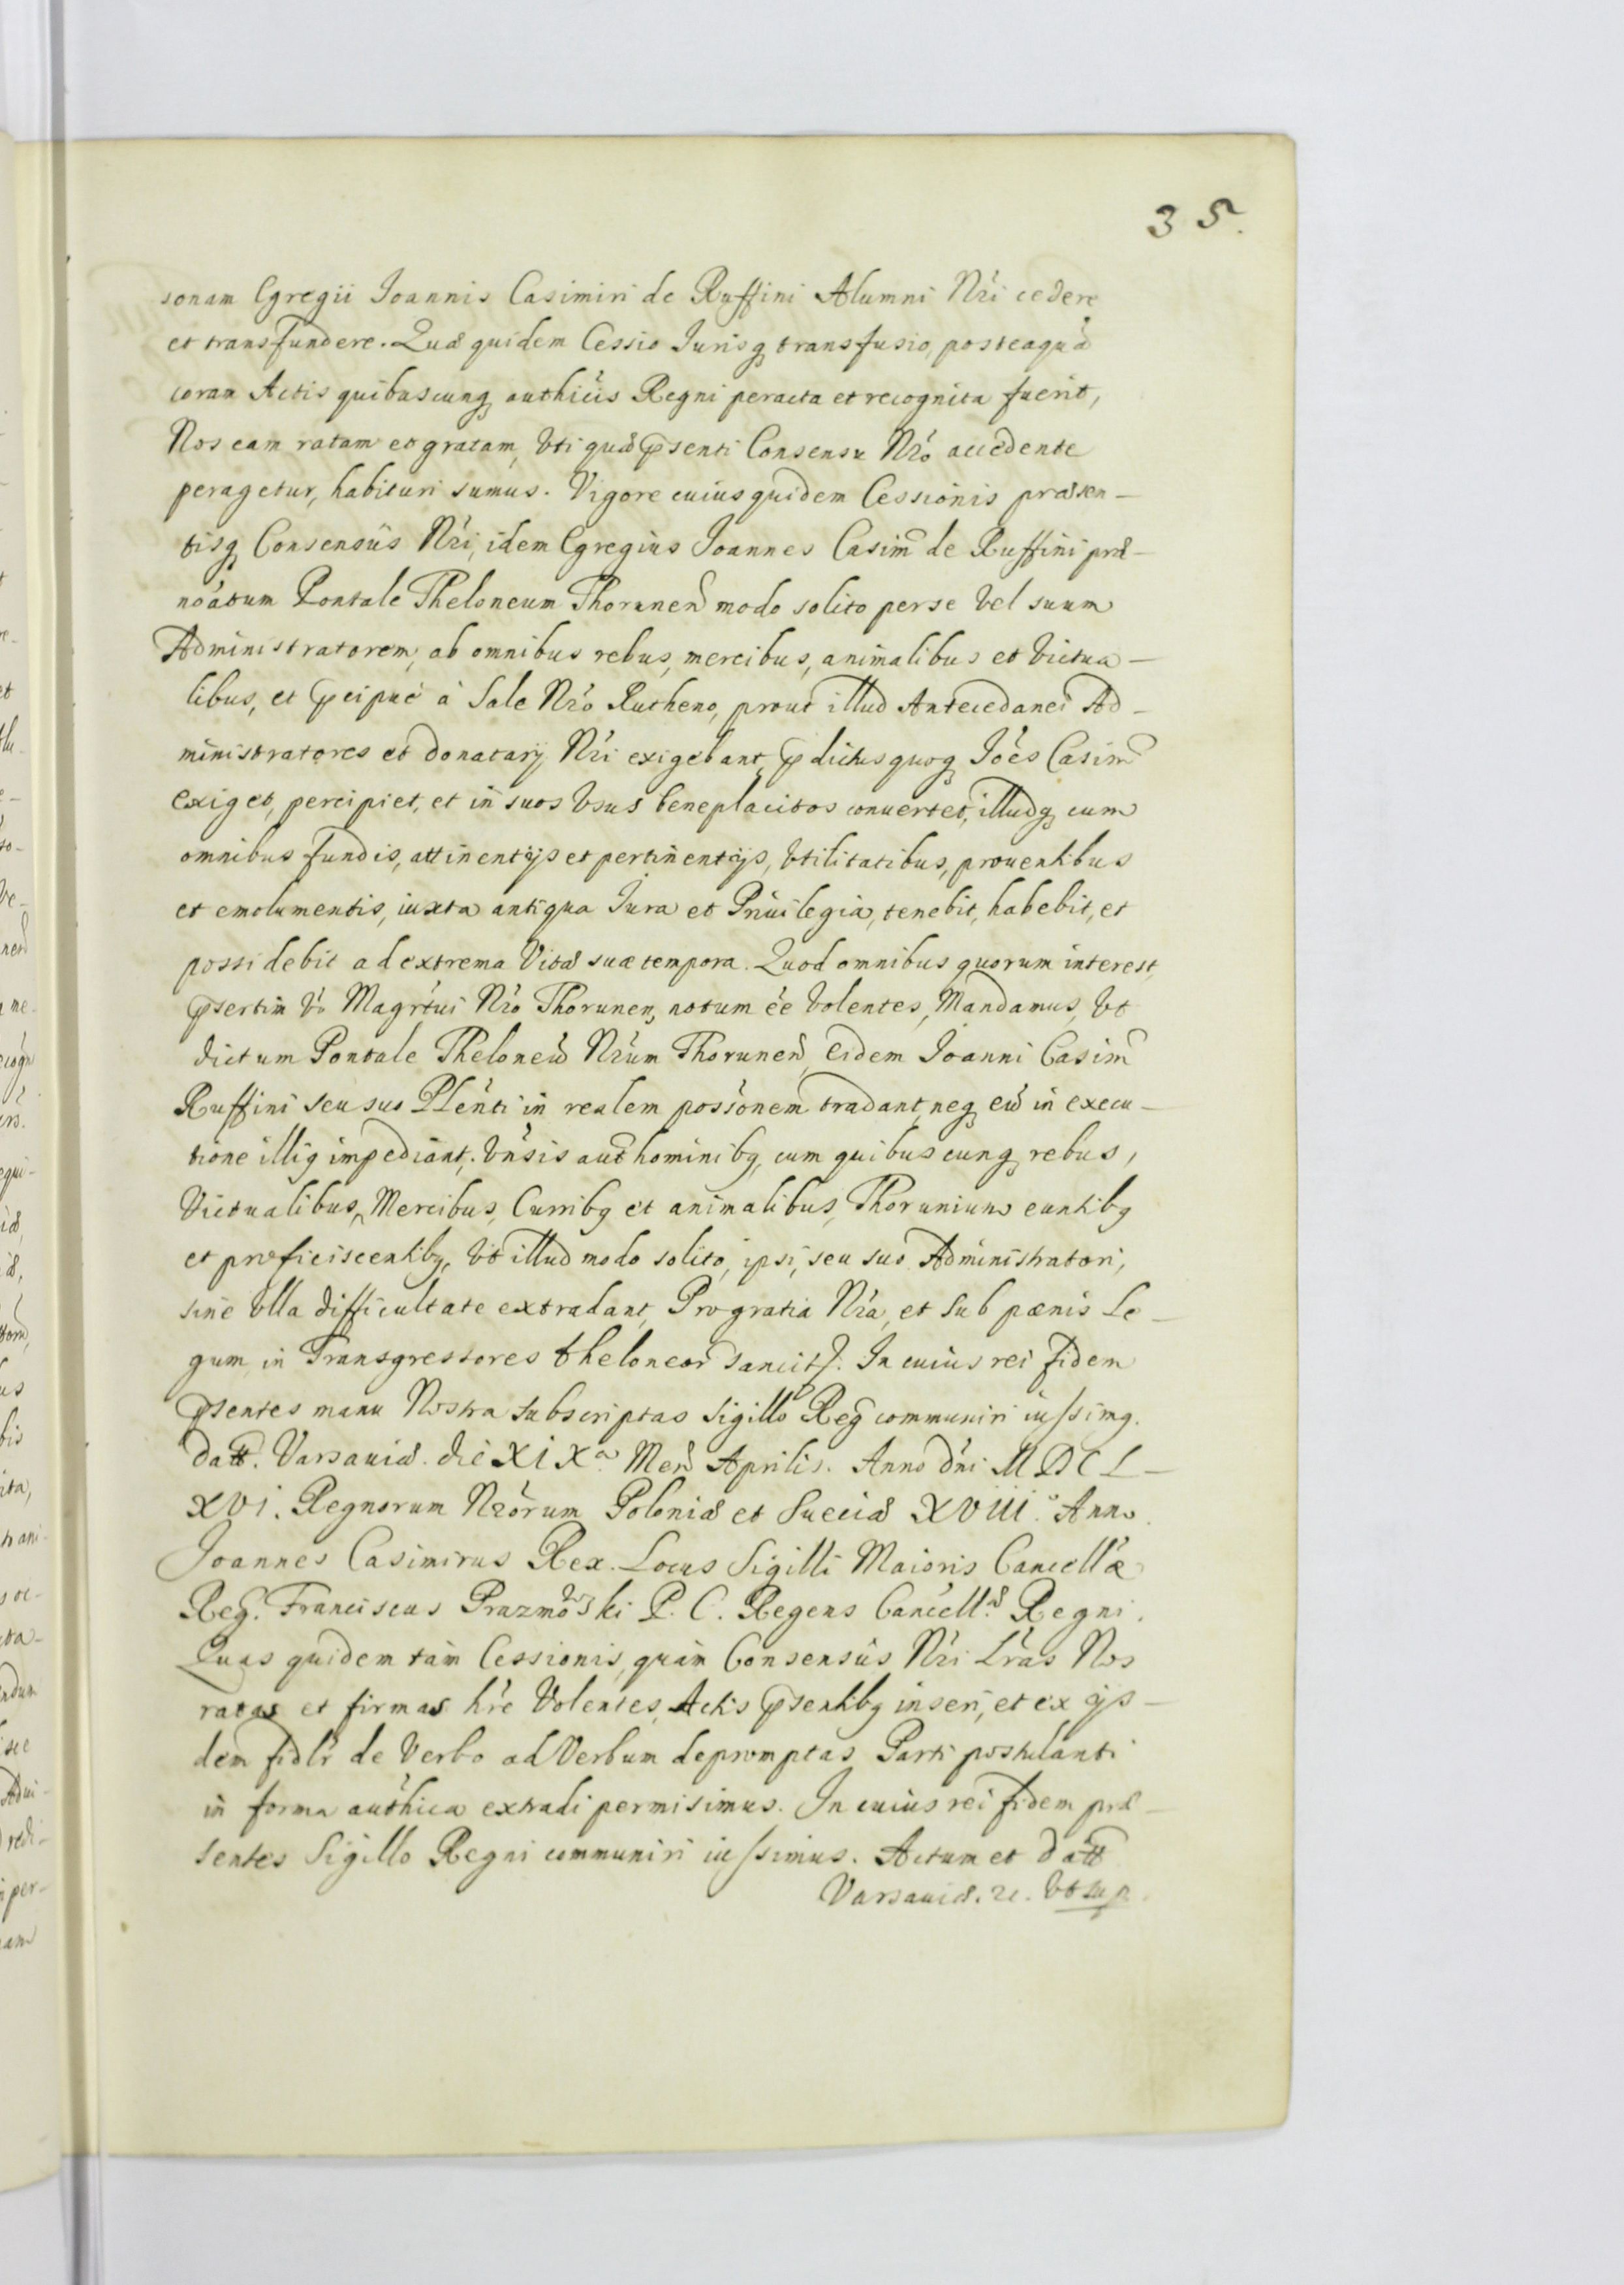 35.
sonam Egregii Joannis Casimiri de Ruffini Alumni Nri cedere
et transfundere. Quæ quidem Cessio Jurisq transfusio, posteaquã
coram Actis quibuscunq authicis Regni peracta et recognita fuerit,
Nos eam ratam et gratam, Vti quæ pñsenti Consensu Nro accedente
peragetur, habituri sumus. Vigore cuius quidem Cessionis præsen-
tisq Consensûs Nri, idem Egregius Joannes Casim de Ruffini præ-
noatum Pontale Theloneum Thorunen modo solito per se Vel suum
Administratorem, ab omnibus rebus, mercibus, animalibus et Victua-
libus, et pcipuè à Sale Nro Rutheno, prout illud Antecedanei Ad-
ministratores et donatarij Nri exigebant, pdictus quoq Joes Casim
exiget, percipiet, et in suos Vsus beneplacitos conuertet, illudq cum
omnibus fundis, attinentijs et pertinentijs, Vtilitatibus, prouentibus
et emolumentis, iuxta antiqua Jura et Priuilegia, tenebit, habebit, et
possidebit ad extrema Vitæ suæ tempora. Quod omnibus quorum interest,
psertim Vo Magrtui Nro Thorunen, notum ee Volentes, Mandamus, Vt
dictum Pontale Theloneũ Nrum Thorunen, Eidem Joanni Casim
Ruffini seu suo Plenti in realem possonem tradant, neq eũ in execu-
tione illiq impediant. Vnsis aut hominibq, cum quibuscunq rebus,
Victualibus, Mercibus, Curribq et animalibus, Thorunium euntibq
et proficiscentibq, Vt illud modo solito, ipsi, seu suo Administratori,
sine Vlla difficultate extradant, Pro gratia Nra, et sub pœnis Le-
gum in Transgressores theloneor sancit. In cuius rei fidem
psentes manu Nostra subscriptas Sigillo Reg communiri iussimq.
datt. Varsauiæ. die XIXa. Men Aprilis. Anno dni MDCL-
XVI. Regnorum Nrorum Poloniæ et Sueciæ XVIII. Anno.
Joannes Casimirus Rex. Locus Sigilli Maioris Cancellæ
Reg. Franciscus Prazmowski P. C. Regens Cancellæ Regni.
Quas quidem tàm Cessionis, quàm Consensûs Nri Lras Nos
ratas et firmas hre Volentes, Actis psentibq inseri, et ex ijs-
dem fidlr de Verbo ad Verbum depromptas Parti postulanti
in forma authica extradi permisimus. In cuius rei fidem præ-
sentes Sigillo Regni communiri iussimus. Actum et datt
Varsauiæ. rc. Vt sup.